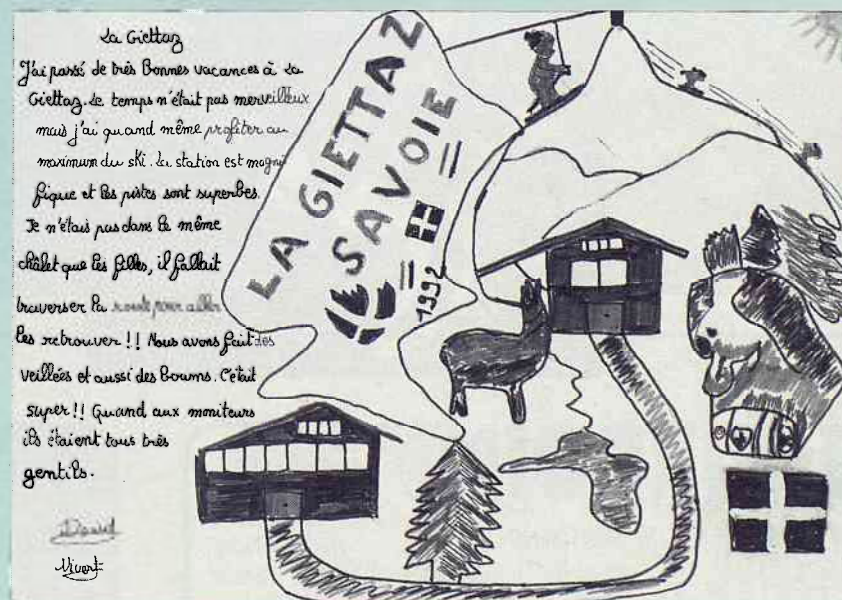 La Giettaz
J'ai passé de très Bonnes vacances à La
Giettaz. Le temps n'était pas merveilleux
mais j'ai quand même profiter au
maximum du ski. La station est magni
fique et les pistes sont superbes.
Je n'étais pas dans le même
châlet que les filles, il fallait
traverser la route pour aller
les retrouver !! Nous avons fait des
veillées et aussi des boums. C'était
super !! Quand aux moniteurs
ils étaient tous très
gentils.
David
Vivert
LA GIETTAZ
SAVOIE
1992